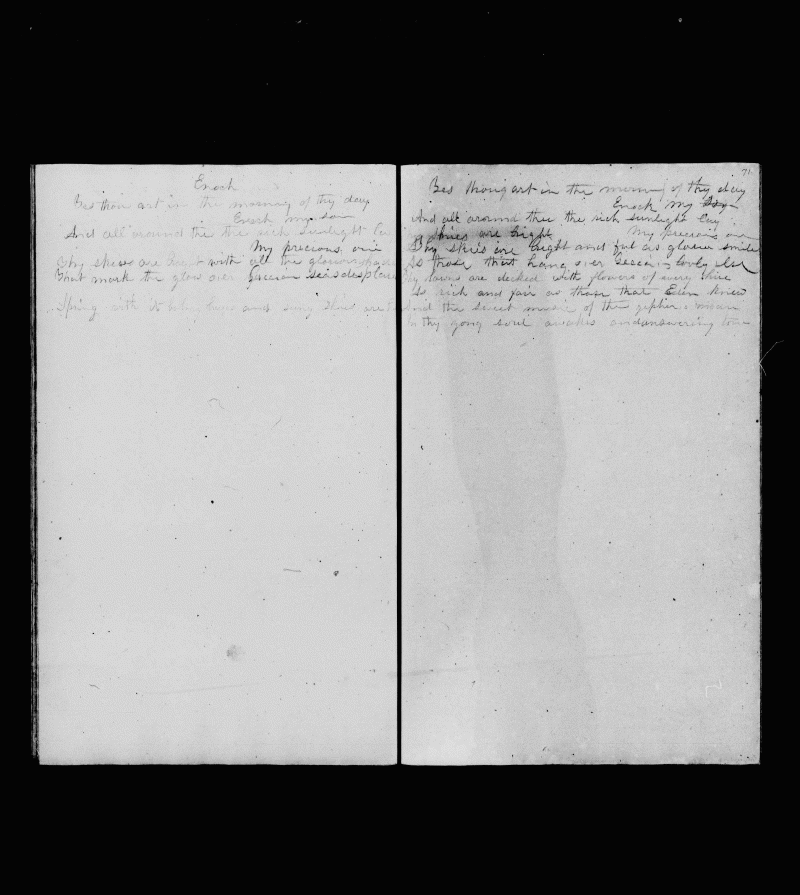 Enoch
Yes thou art in the morning of thy day
Enoch my son
And all around thee the rich sunlight lay
My precious one
Thy skies are bright with all the glorious
That mark the glow over Grecian seas displayed
Spring with its hues and sung
71
Yes thou art in the morning of thy day
Enoch my
And all around thee the rich sunlight lay
skies are bright My precious one
Thy skies are bright and
As those that hang over lovely
Thy are decked with flowers of every
As rich and fair as those that Eden knew
And the sweet music of the
In thy young soul awakes an answering tone